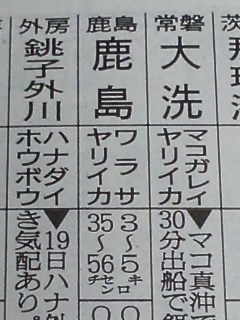 常磐
大洗
マコガレイ
ヤリイカ
▼マコ真沖で
30分出船で
鹿島
鹿島
ワラサ
ヤリイカ
3〜5キロ
35〜56センチ
外房
銚子外川
ハナダイ
ホウボウ
▼19日ハナ外
き気配あり。